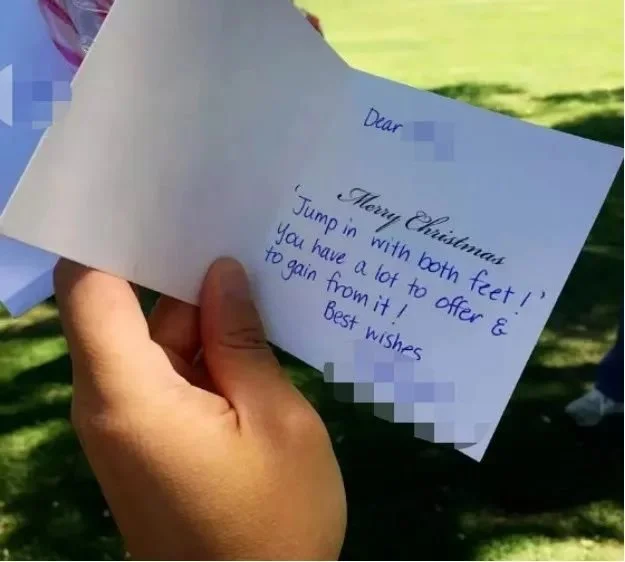 Dear
Merry Christmas
'Jump in with both feet!'
You have a lot to offer &
to gain from it!
Best wishes